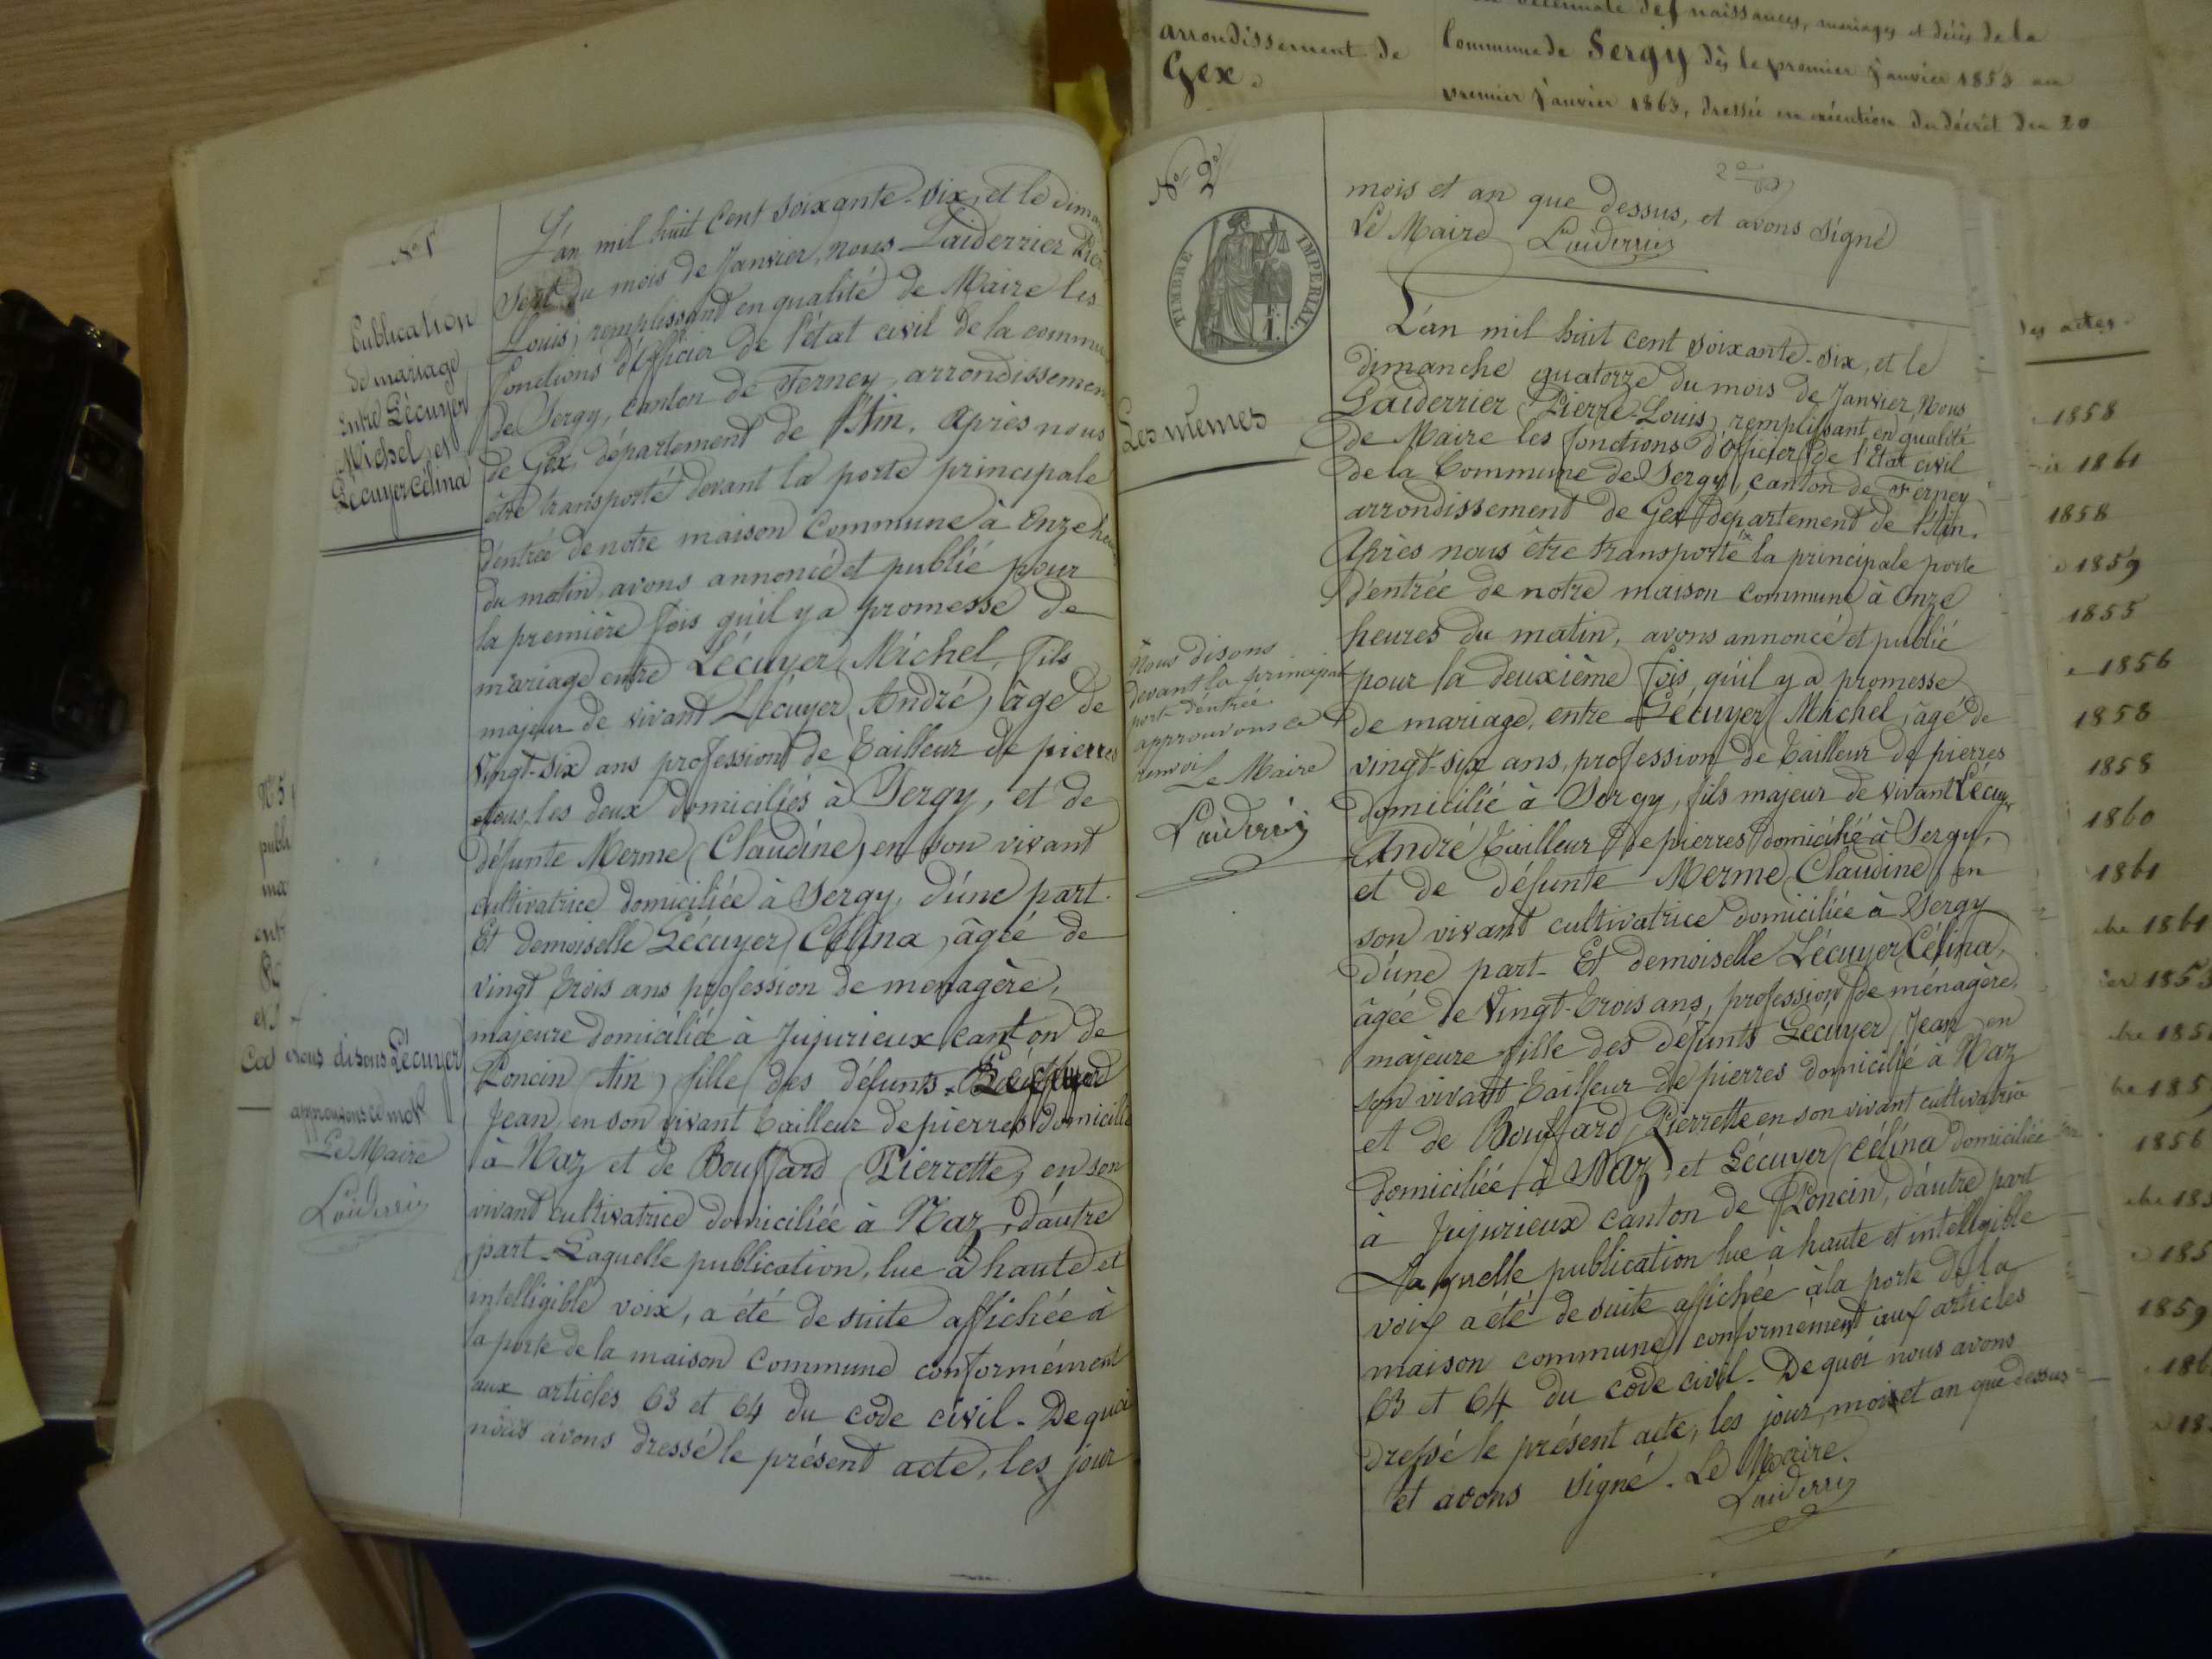 arrondissement de
Gex.
naissances, mariages et décès de la
Commune de Sergy dès le premier Janvier 1853 au
premier Janvier 1863, dressée en exécution du décret du 20
N° 1er
Publication
de mariage
entre Lécuyer
Michel, et
Lécuyer Célina
L'an mil huit cent soixante-six, et le
Sept du mois de Janvier, nous Laiderrier
Louis, remplissant en qualité de Maire les
fonctions d'Officier de l'état civil de la
de Sergy, canton de Ferney, arrondissement
de Gex, département de l'Ain. Après nous
être transporté devant la porte principale
d'entrée de notre maison Commune à Onze
du matin, avons annoncé et publié pour
la première fois qu'il y a promesse de
mariage entre Lécuyer Michel, fils
majeur de vivant Lécuyer André, âgé de
Vingt-six ans profession de tailleur de pierres
tous les deux domiciliés à Sergy, et de
défunte Merme (Claudine) en son vivant
cultivatrice domiciliée à Sergy, d'une part.
Et demoiselle Lécuyer (Célina), âgée de
vingt trois ans profession de menagère,
majeure domiciliée à Jujurieux canton de
Poncin (Ain) fille des défunts
Jean, en son vivant tailleur de pierres domicilié
à Naz et de Bouffard (Pierrette) en son
vivant cultivatrice domiciliée à Naz, d'autre
part. Laquelle publication, lue à haute et
intelligible voix, a été de suite affichée à
la porte de la maison Commune conformément
aux articles 63 et 64 du code civil. De quoi
nous avons dressé le présent acte, les jour
nous disons Lécuyer
approuvons ce mot
Le Maire
Laiderrier
N° 2
TIMBRE IMPERIAL.
Les mêmes
mois et an que dessus, et avons signé
Le Maire Laiderrier
L'an mil huit cent soixante-six, et le
dimanche quatorze du mois de Janvier, Nous
Laiderrier (Pierre-Louis) remplissant en qualité
de Maire les fonctions d'Officier de l'Etat civil
de la Commune de Sergy, canton de Ferney
arrondissement de Gex département de l'Ain.
Après nous être transporté la principale porte
d'entrée de notre maison commune à Onze
heures du matin, avons annoncé et publié
pour la deuxième fois, qu'il y a promesse
de mariage, entre Lécuyer (Michel), âgé de
vingt-six ans, profession de tailleur de pierres
domicilié à Sergy, fils majeur de vivant Lécuyer
(André) tailleur de pierres domicilié à Sergy,
et de défunte Merme (Claudine) en
son vivant cultivatrice domiciliée à Sergy
d'une part. Et demoiselle Lécuyer (Célina),
âgée de Vingt-trois ans, profession de ménagère,
majeure fille des défunts Lécuyer (Jean) en
son vivant tailleur de pierres domicilié à Naz
et de Bouffard (Pierrette en son vivant cultivatrice
domiciliée à Naz, et Lécuyer (Célina domiciliée
à Jujurieux canton de Poncin, d'autre part
Laquelle publication lue à haute et intelligible
voix a été de suite affichée à la porte de la
maison commune, conformément aux articles
63 et 64 du code civil. De quoi nous avons
dressé le présent acte, les jour mois et an que dessus
et avons signé. Le Maire.
Laiderrier
Nous disons
devant la principale
porte d'entrée
approuvons ce
renvoi
Le Maire
Laiderrier
N° 5
publi
ma
ent
des actes.
1858
1861
1858
1859
1855
1856
1858
1858
1860
1861
1861
1853
185
185
1856
185
185
1859
186
18